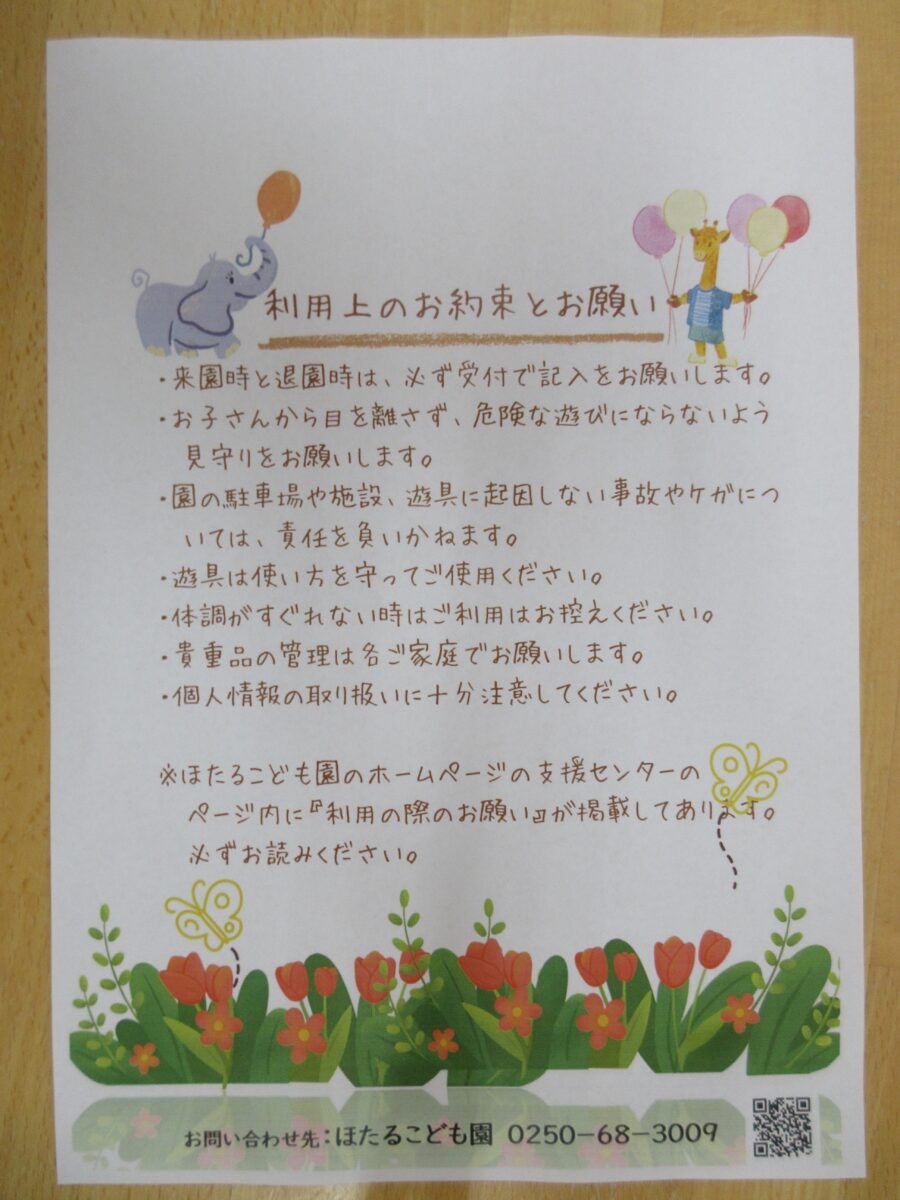 利用上のお約束とお願い
・来園時と退園時は、必ず受付で記入をお願いします。
・お子さんから目を離さず、危険な遊びにならないよう
見守りをお願いします。
・園の駐車場や施設、遊具に起因しない事故やケガにつ
いては、責任を負いかねます。
・遊具は使い方を守ってご使用ください。
・体調がすぐれない時はご利用はお控えください。
・貴重品の管理は各ご家庭でお願いします。
・個人情報の取り扱いに十分注意してください。
※ほたるこども園のホームページの支援センターの
ページ内に『利用の際のお願い』が掲載してあります。
必ずお読みください。
お問い合わせ先：ほたるこども園 0250-68-3009